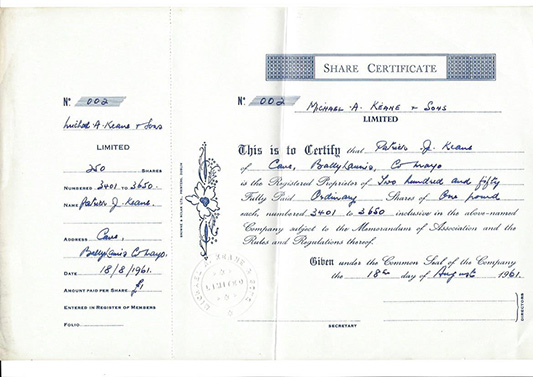 No. 002
Michael A. Keane & Sons
LIMITED
250 SHARES
NUMBERED 3401 TO 3650.
NAME Patrick J. Keane.
ADDRESS Cave,
Co Mayo.
DATE 18/8/1961.
AMOUNT PAID PER SHARE. £1
ENTERED IN REGISTER OF MEMBERS
FOLIO
SHARE CERTIFICATE
No. 002 MICHAEL A. KEANE & SONS
LIMITED
This is to Certify that Patrick J. Keane
of Cave, Co Mayo
is the Registered Proprietor of Two hundred and fifty
Fully Paid Ordinary Shares of One pound
each, numbered 3401 to 3650 inclusive in the above-named
Company subject to the Memorandum of Association and the
Rules and Regulations thereof.
Given under the Common Seal of the Company
the 18th day of August 1961.
DIRECTORS
SECRETARY
LIMITED